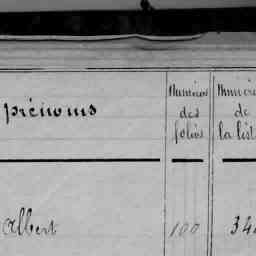 prénoms
Numéros des folios
Numéros de la list
Albert 100 34